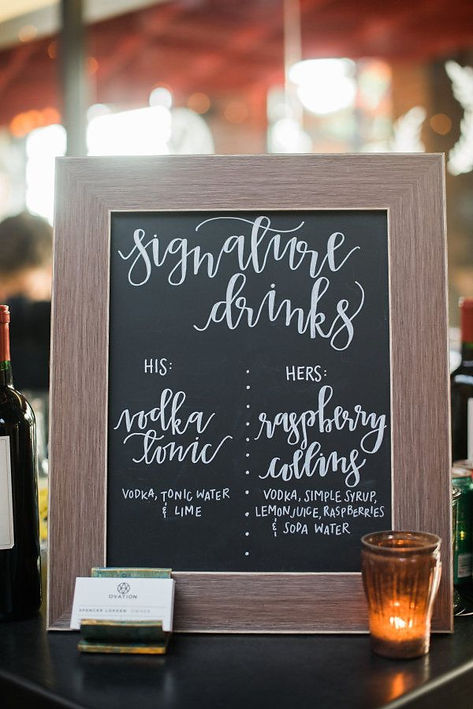 signature
drinks
HIS:
vodka
tonic
VODKA, TONIC WATER
& LIME
HERS:
raspberry
collins
VODKA, SIMPLE SYRUP,
LEMON JUICE, RASPBERRIES
& SODA WATER
OVATION
SPENCER